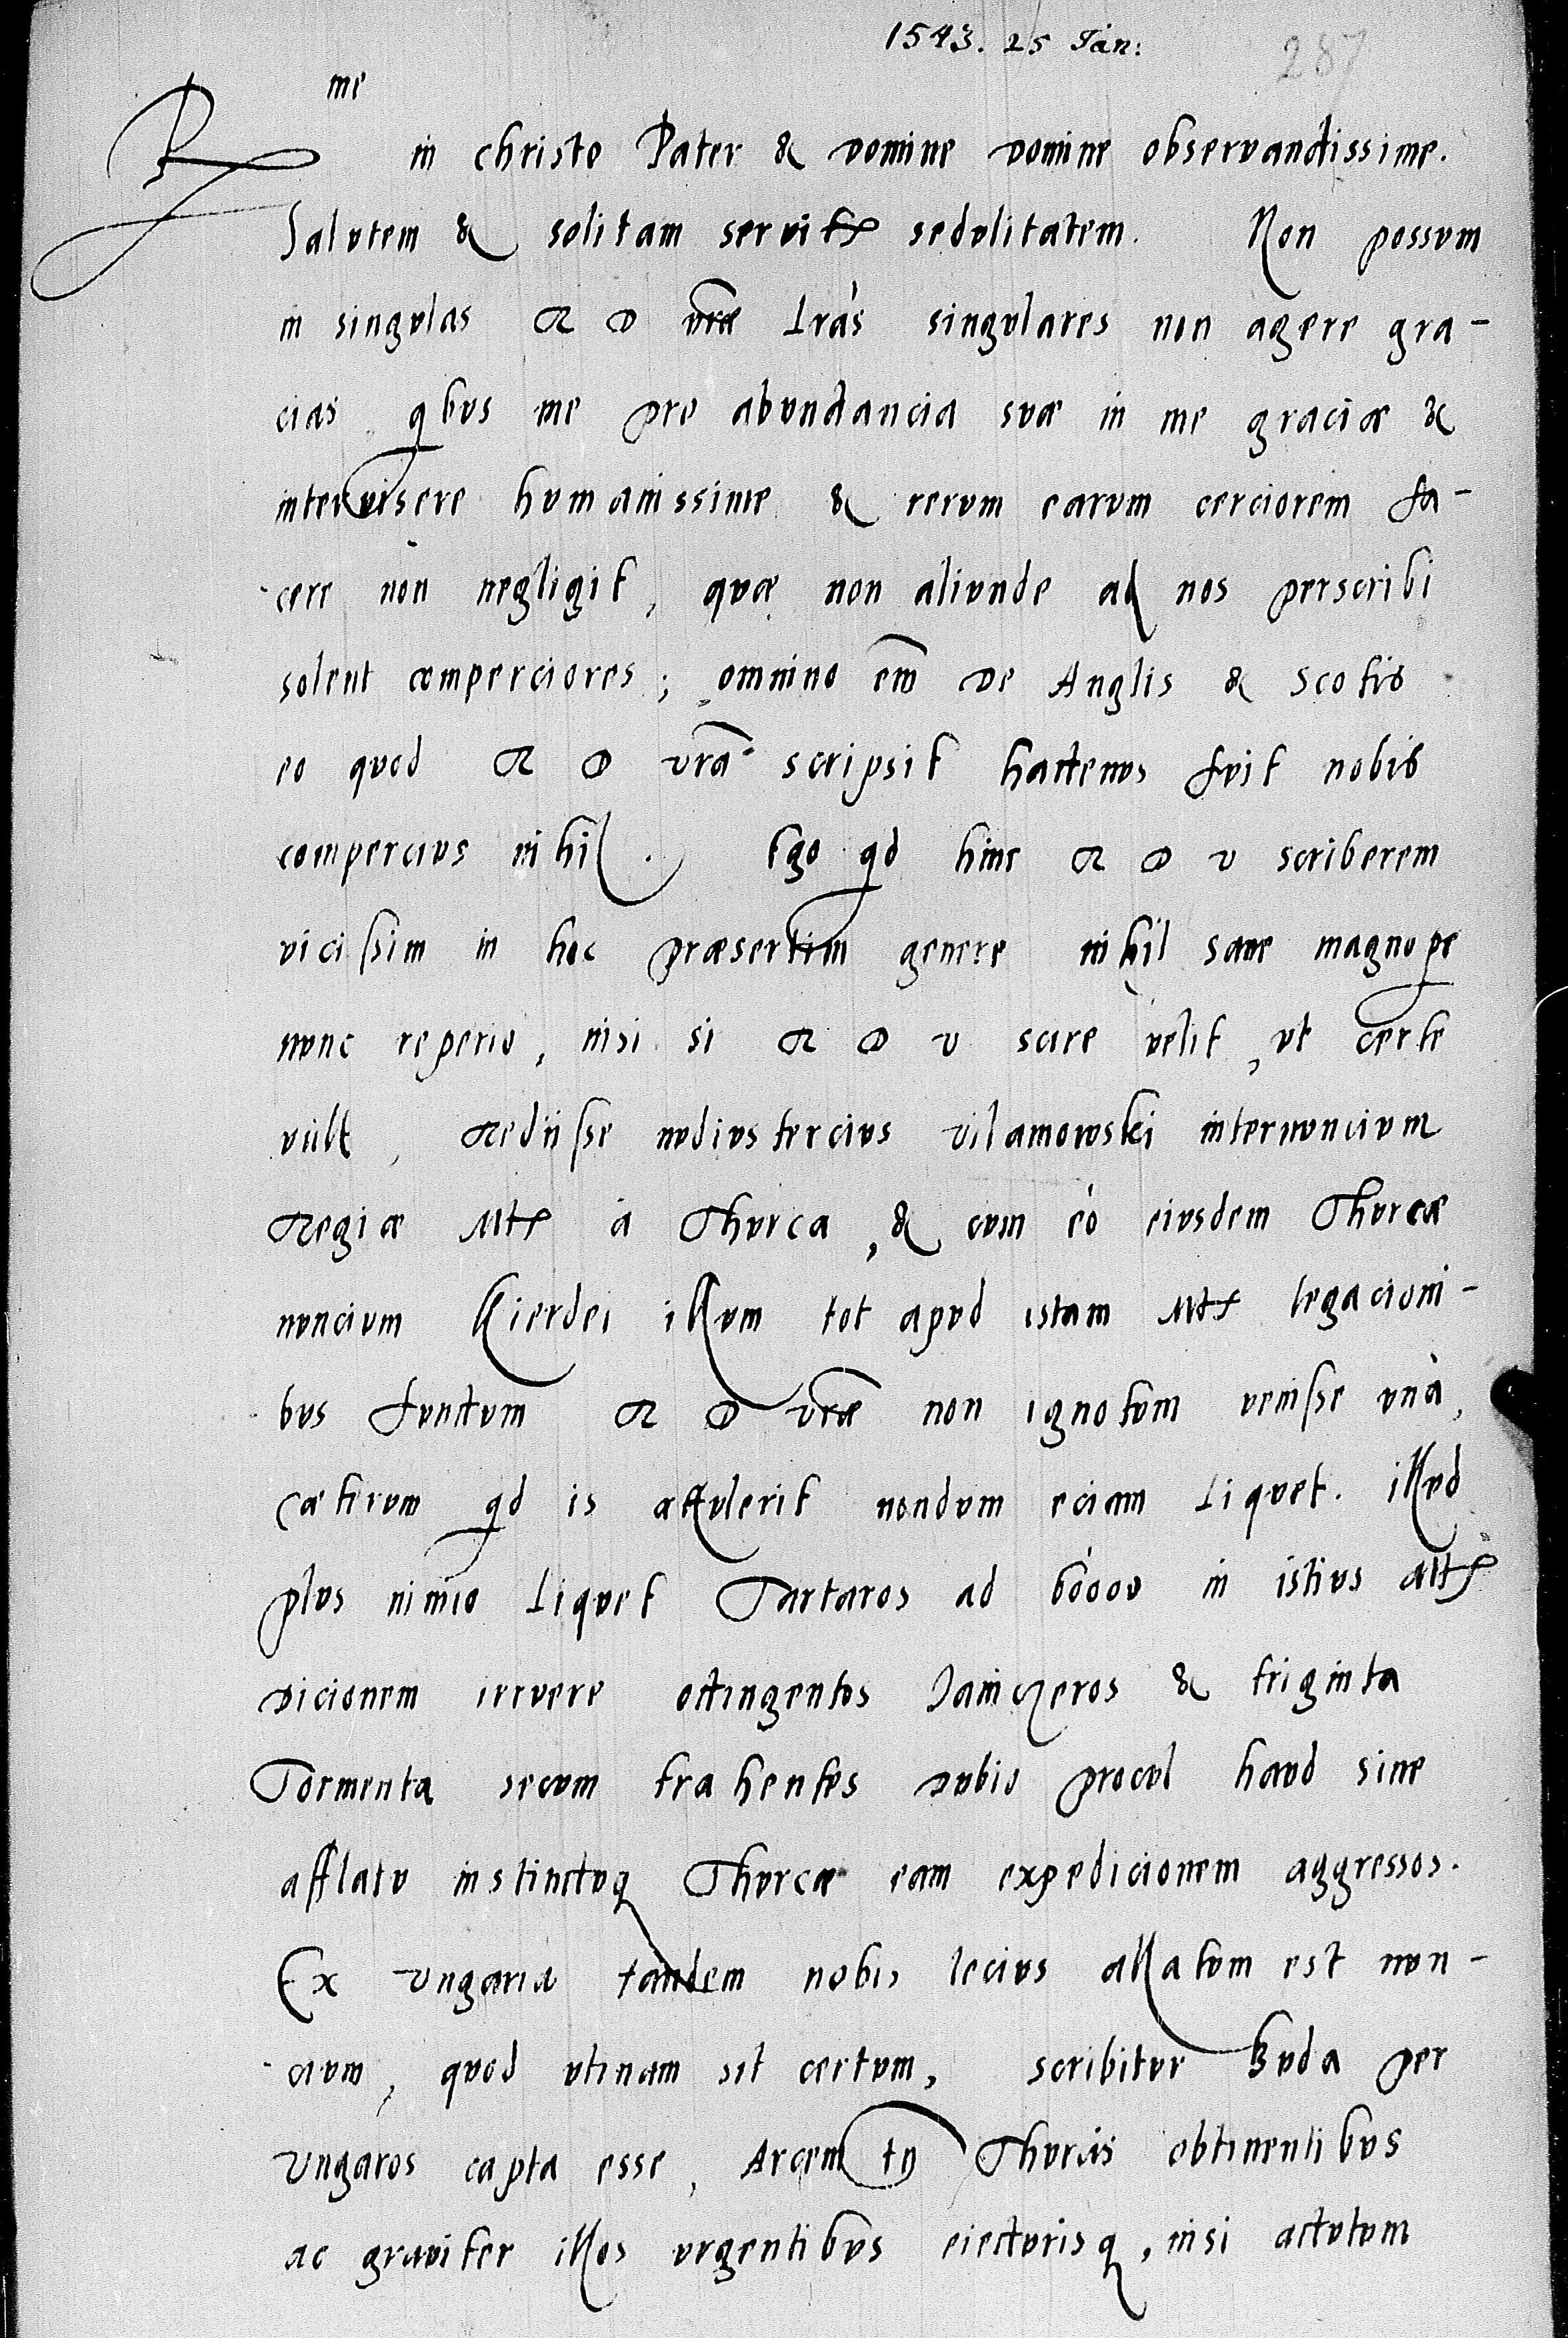 1543. 25 Jan:
287
R me in christo Pater & domine domine observandissime.
Salutem & solitam servitis sedulitatem. Non possum
in singulas R D vrae Lras singulares non agere gra-
cias qbus me pre abundancia suae in me graciae &
intervisere humanissime & rerum earum cerciorem fa-
cere non negligit, quae non aliunde ad nos perscribi
solent comperciores; omnino em de Anglis & Scotis
eo quod R D vra scripsit hactenus fuit nobis
compercius nihil. Ego qd hinc R D v scriberem
vicissim in hoc praesertim genere nihil sane magnope
nunc reperio, nisi si R D v scire velit, ut certe
vult, Rediisse nudiustercius vilamowski internuncium
Regiae Mtis a Thurca, & cum eo eiusdem Thurcae
nuncium Kierdei illum tot apud istam Mtis legacioni-
bus functum R D vrae non ignotum venisse una,
caeterum qd is attulerit nondum eciam Liquet. illud
plus nimio Liquet Tartaros ad 60000 in istius Mtis
dicionem irruere octingentos Janiczeros & triginta
Tormenta secum trahentes dubio procul haud sine
afflatu instinctuq Thurcae eam expedicionem aggressos.
Ex ungaria tandem nobis lecius allatum est nun-
cium, quod utinam sit certum, scribitur Buda per
Ungaros capta esse, Arcem tn Thurcis obtinentibus
ac graviter illos urgentibus eiecturisq, nisi actutum